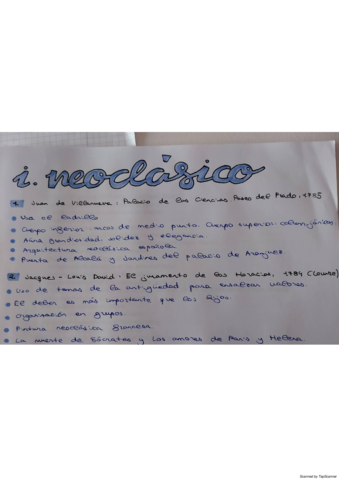 i. neoclásico
1. Juan de Villanueva: Palacio de las Ciencias Paseo del Prado, 1785
Usa el ladrillo
Cuerpo inferior: arcos de medio punto. Cuerpo superior: colum. jónicas.
Aúna grandiosidad, solidez y elegancia
Arquitectura neoclásica española
Puerta de Alcalá y Jardines del palacio de Aranjuez
2. Jacques-Louis David: El juramento de los Horacios, 1784 (Louvre)
Uso de temas de la antigüedad para ensalzar valores
El deber es más importante que los hijos.
Organización en grupos
Pintura neoclásica francesa
La muerte de Sócrates y Los amores de Paris y Helena
Scanned by TapScanner